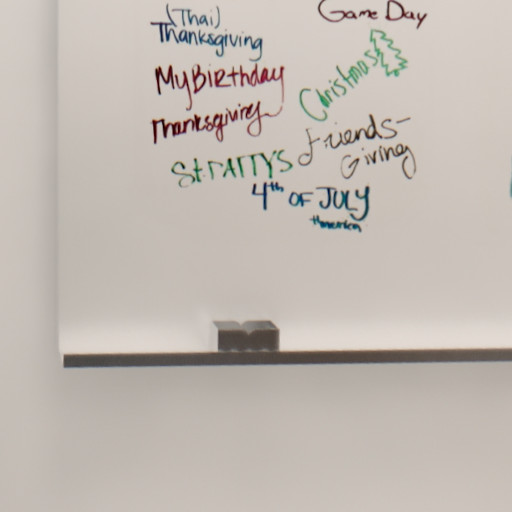 (Thai)
Thanksgiving
Game Day
MyBirthday
Christmas
Thanksgiving
Friends-
Giving
St. PATTY'S
4th OF JULY
#merica